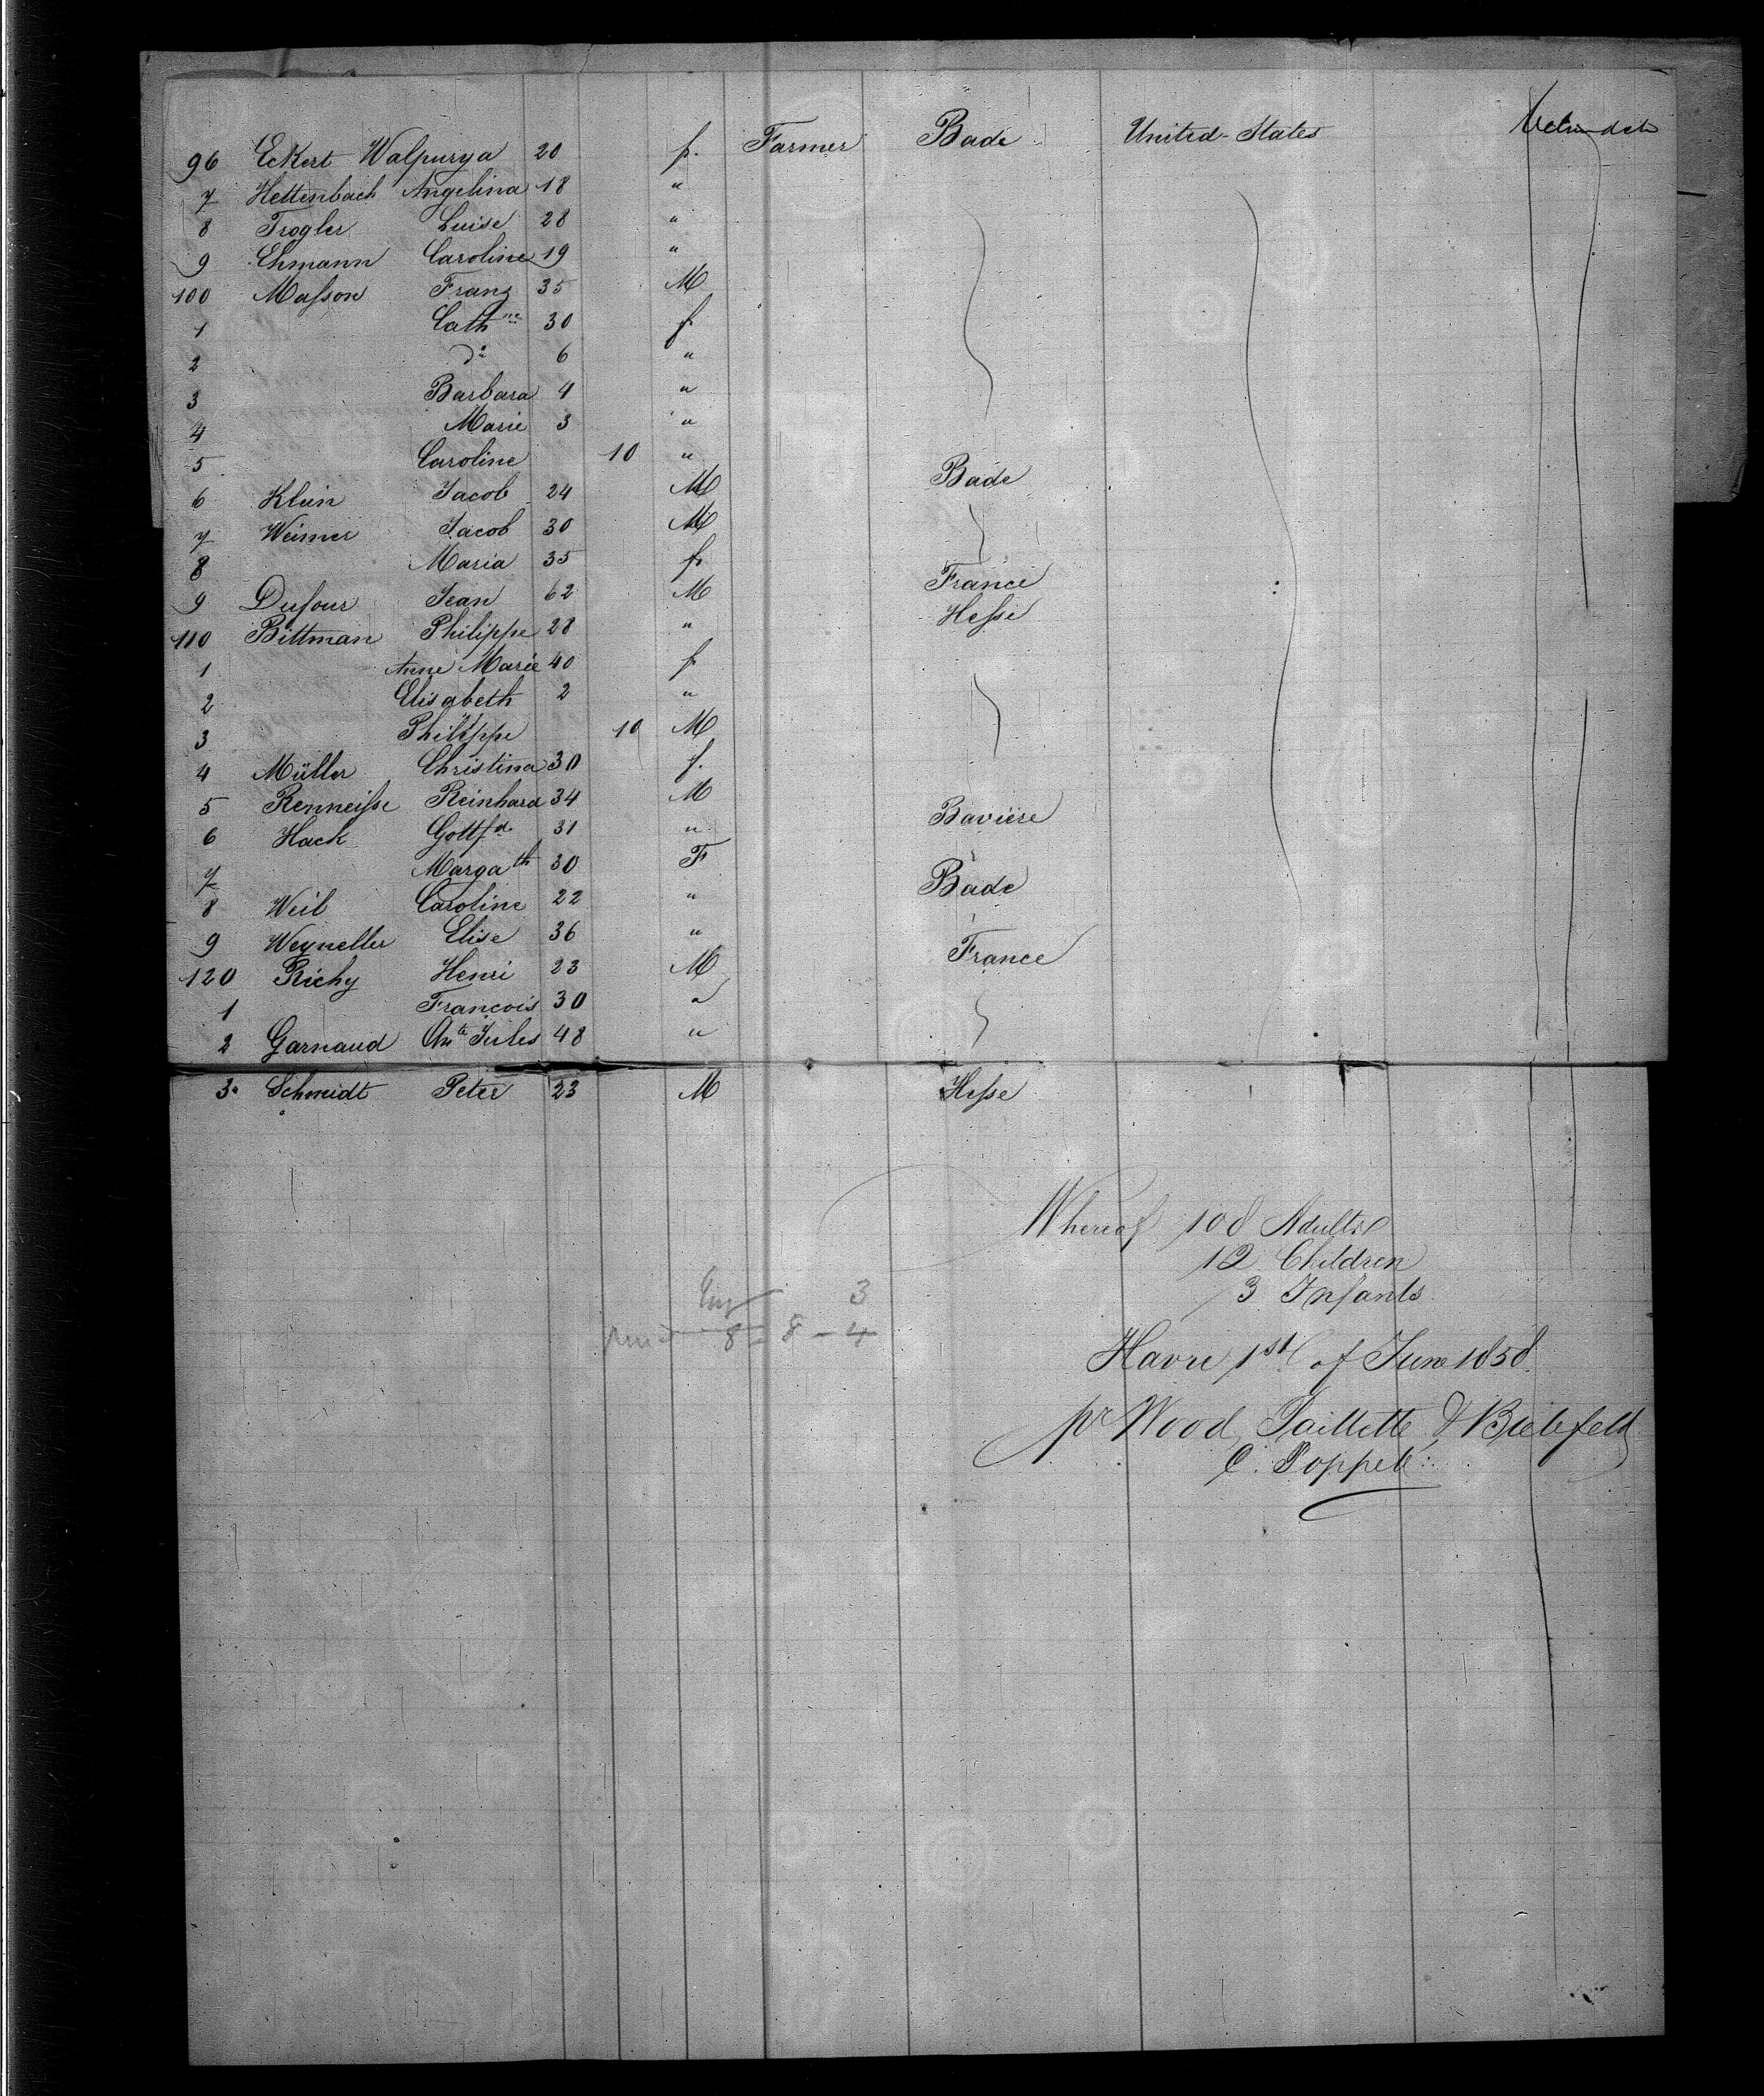 96 Eckert Walpurga 20 f. Farmer Bade United-States
7 Hettenbach Angelina 18 "
8 Trogler Luise 28 "
9 Ehmann Caroline 19 "
100 Masson Franz 35 M
1 Cath ne 30 f
2 do 6 "
3 Barbara 4 "
4 Marie 3 "
5 Caroline 10 "
6 Klein Jacob 24 M Bade
7 Weimer Jacob 30 M
8 Maria 35 f
9 Dufour Jean 62 M France
110 Bittman Philippe 28 " Hesse
1 Anne Marie 40 f
2 Elisabeth 2 "
3 Philippe 10 M
4 Müller Christina 30 f.
5 Renneisse Reinhard 34 M
6 Hack Gottfd 31 " Bavière
7 Margath 30 F
8 Weil Caroline 22 " Bade
9 Weyneller Elise 36 "
120 Richy Henri 23 M France
1 François 30 "
2 Garnaud Jules 48 "
3 Schmidt Peter 23 M Hesse
Whereof 108 Adults
12 Children
3 Infants
3
8 = 8 - 4
Havre 1st of June 1858
pr Wood, Paillette & Bielefeld
C. Poppele